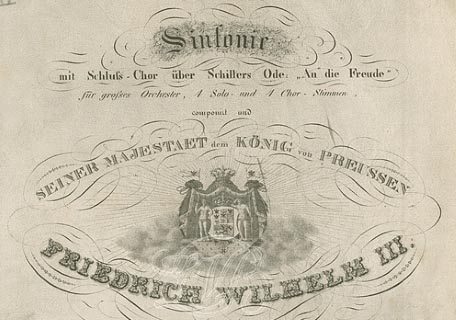 Sinfonie
mit Schluſs-Chor über Schillers Ode: „An die Freude“
für großes Orchester, 4 Solo- und 4 Chor-Stimmen,
componirt und
SEINER MAJESTAET dem KÖNIG von PREUSSEN
FRIEDRICH WILHELM III.